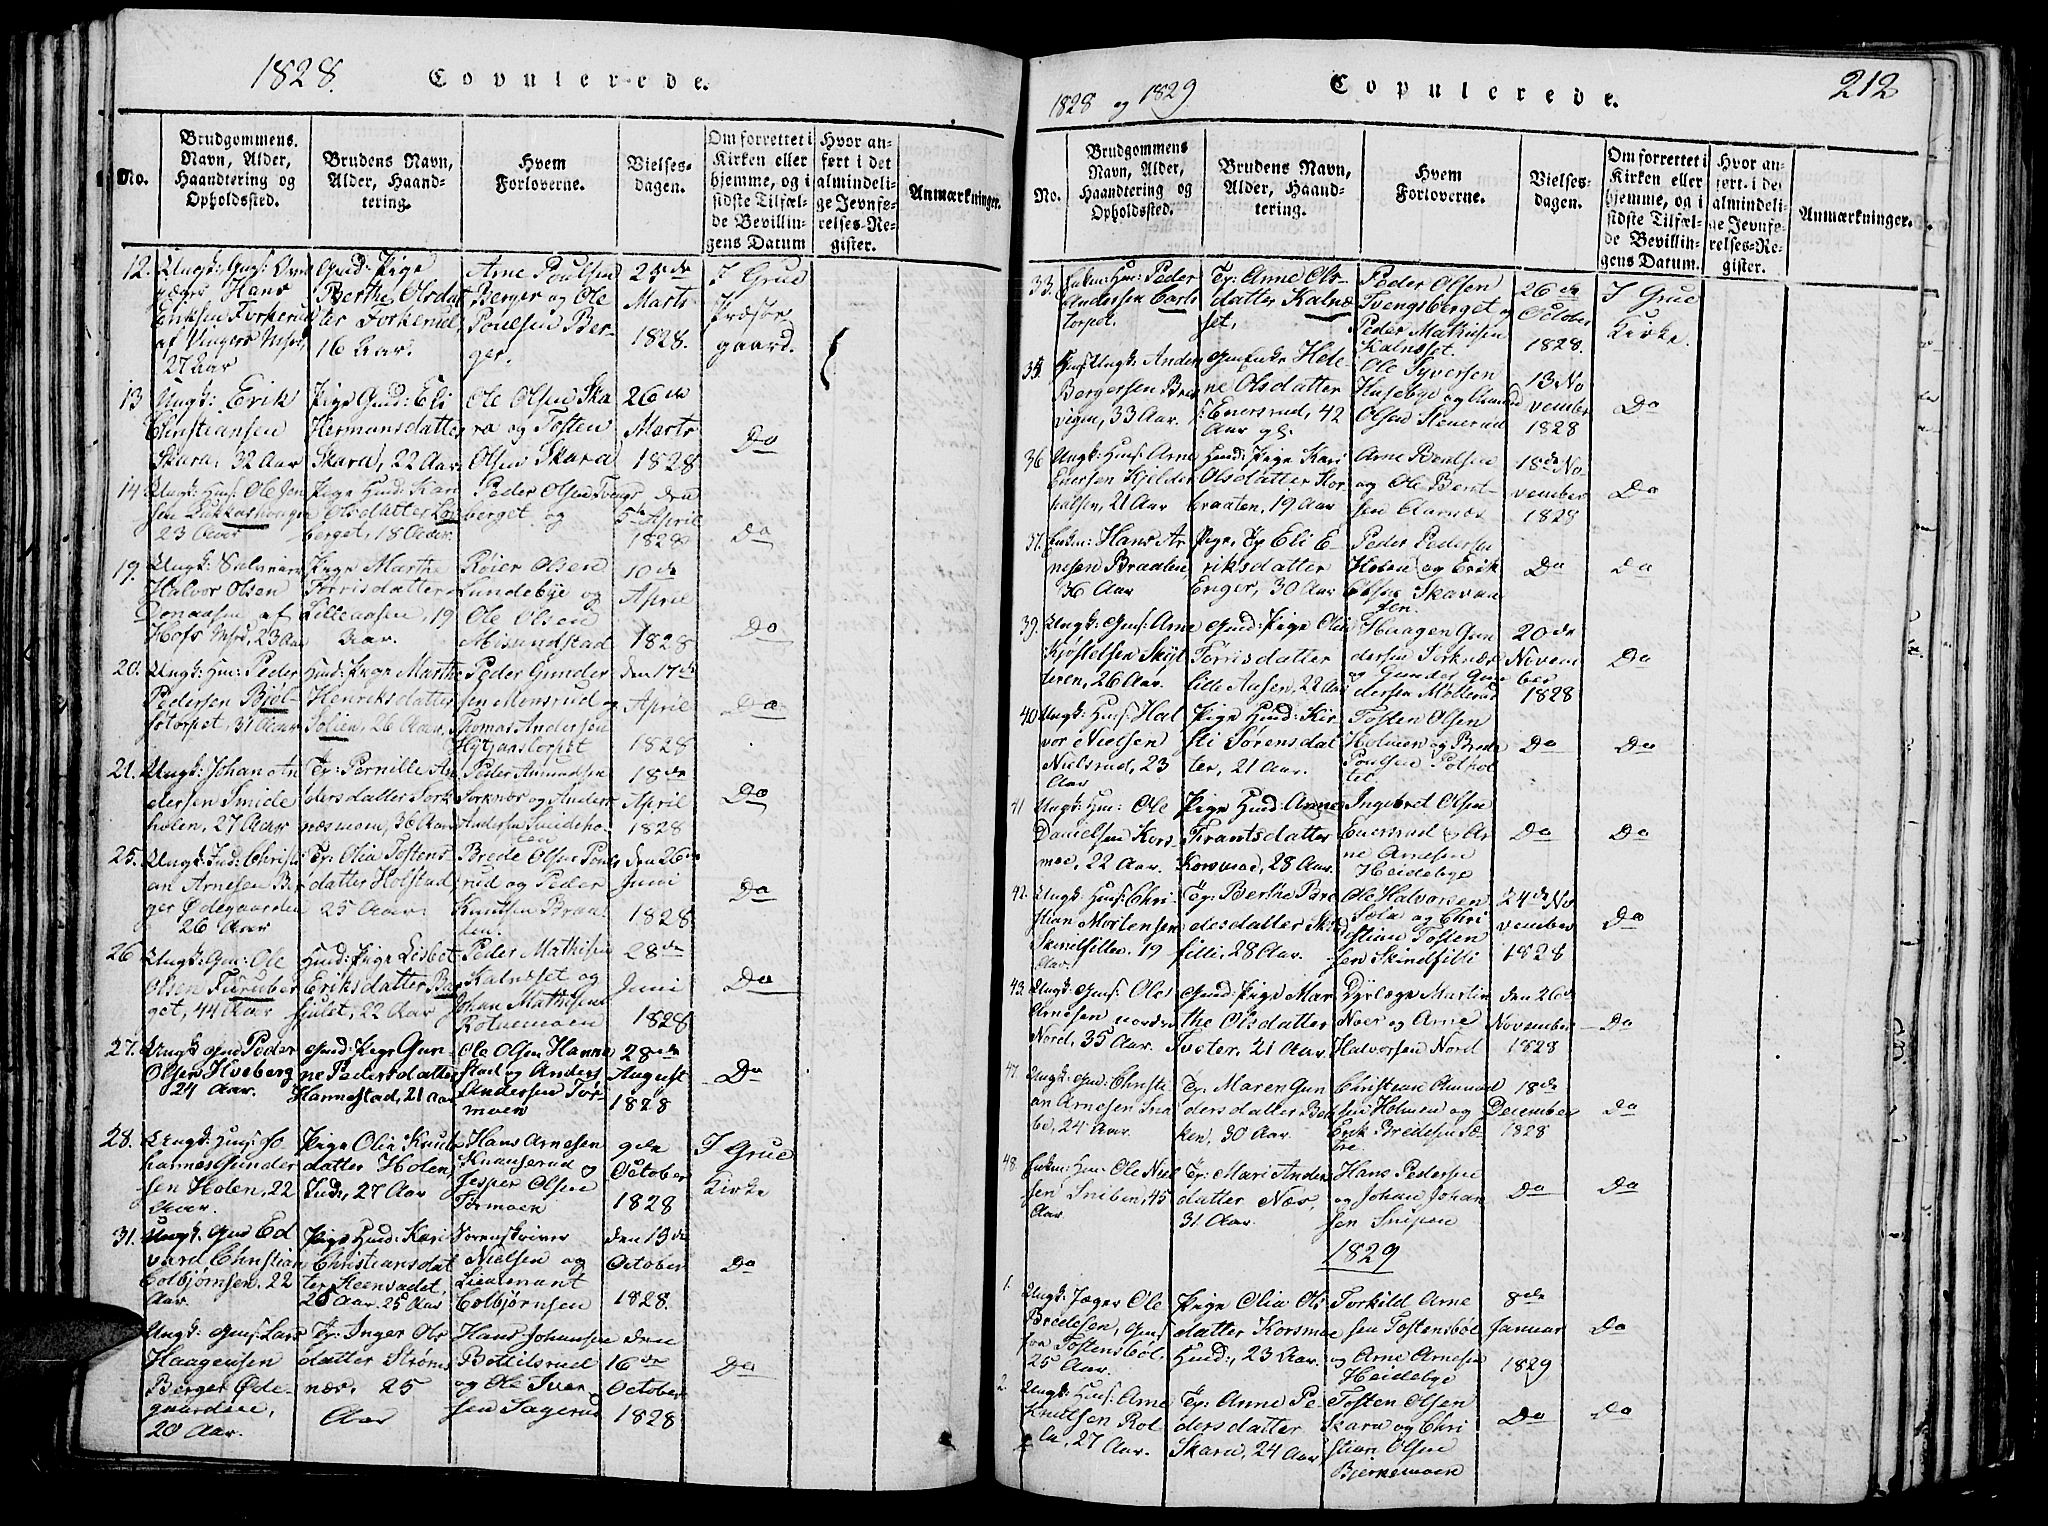 1828. Copulerede.
No.
Brudgommens
Navn, Alder,
Haandtering og
Opholdssted.
Brudens Navn,
Alder, Haand-
tering.
Hvem
Forloverne.
Vielses-
dagen.
Om forrettet i
Kirken eller
hjemme, og i
sidste Tilfæl-
de Bevillin-
gens Datum
Hvor an-
ført i det
almindeli-
ge Jevnfø-
relses-Re-
gister.
Anmærkninger.
12.
Hans
Eriksen Torkerud
af Vingers
27 Aar
Pige
Berthe Olsdat
ter Torkerud
16 Aar.
Arne Poulsen
Berger og Ole
Poulsen Ber-
ger.
25de
Marts
1828.
I Grue
Præste
gaard.
13 Ungk: Erik
Christiansen
Skara, 32 Aar
Pige Gmd: Eli
Hermansdatter
Skara, 22 Aar
Ole Olsen Ska
ra og Tosten
Olsen Skara
26de
Marts
1828
Do
14 Ungk: Hms: Ole Jen
sen
23 Aar
Pige Hmd: Kari
Olsdatter
berget, 18 Aar.
Peder Olsen Tvengs
berget og
den
5te April
1828
Do
19. Ungk:
Halvor Olsen
af
Hofs 23 Aar
Pige Marthe
Torrisdatter
Lilleaasen, 19
Aar.
Røier Olsen
Lundebye og
Ole Olsen
Misundstad
10de
April
1828
Do
20. Ungk: Hm: Peder
Pedersen Bjøl-
storpet, 31 Aar
Hmd: Pige Marthe
Henriksdatter
Solien, 26 Aar,
Peder Gunder
sen Monsrud og
Thomas Andersen
den 17de
April
1828
Do
21. Ungk: Johan An
dersen Smide
holen, 27 Aar
Ep: Pernille An
dersdatter Sork
næsmoen, 36 Aar
Peder Amundsen
Sorknæs og Anders
Andersen Smideho
len
18de
April
1828
Do
25. Ungk: Ind: Christi
an Arnesen Ber
ger Ødegaarden
26 Aar
Ep: Olia Tostens
datter Holstad
25 Aar.
Brede Olsen
rud og Peder
Knudsen Braa-
den.
den 26de
Juni
1828
Do
26 Ungk: Gm: Ole
Olsen Furuber
get, 44 Aar
Hmd: Pige Lisbet
Eriksdatter Ba
22 Aar
Peder Mathisen
Kalnesset og
Johan Mathisen
Rotnemoen
28de
Juni
1828
Do
27. Ungk Gmd Peder
Olsen Hveberg
24 Aar.
Gmd: Pige Gun
ne Pedersdatter
Hannestad, 21 Aar
Ole Olsen Hanne
stad og Anders
Andersen Tør
moen
28de
August
1828
Do
28. Ungk: Hms: Jo
hannes Gunder
sen Holen, 22
Aar.
Pige Oli Knuts
datter Holen,
Ind:, 27 Aar
Hans Arnesen
Knauserud og
Jesper Olsen
Tørmoen
9de
October
1828
I Grue
Kirke
31. Ungk: Gmd Ed
vard Christian
Colbjørnsen. 22
Aar.
Pige Hmd: Kari
Christiansdat
ter
25 Aar. 25 Aar
Sorenskriver
Nielsen og
Lieutenant
Colbjørnsen
den 13de
October
1828.
Do
Ungk: Gms: Lars
Haagensen
Berger Øde-
gaarden,
20 Aar.
Ep: Inger Ols
datter Strøm
nær, 25
Aar
Hans Johansen
Bottilsrud
og Ole Iver
sen Sagerud
den
16de
October
1828
Do
1828 og 1829 Copulerede. 212
No.
Brudgommens
Navn, Alder,
Haandtering og
Opholdssted.
Brudens Navn,
Alder, Haand-
tering.
Hvem
Forloverne.
Vielses-
dagen.
Om forrettet i
Kirken eller
hjemme, og i
sidste Tilfæl-
de Bevillin-
gens Datum.
Hvor an-
ført i det
almindeli-
ge Jevnfø-
relses-Re-
gister.
Anmærkninger.
33. Enkem: Hm: Peder
Andersen Carls
torpet.
Ep: Anne Ols
datter Kalnæ
set,
Peder Olsen
Tvengsberget og
Peder Mathisen
Kalnæset.
26de
October
1828.
I Grue
Kirke.
35. Gms: Ungk: Anders
Bergersen Bred
vigen, 33 Aar.
Gmds Enke Hele
ne Olsdatter
Enersrud, 42
Aar gl.
Ole Syversen
Husebye og Amund
Olsen Stenerud
13 No
vember
1828
Do
36 Ungk: Hms: Arne
Enersen Kjelder
halsen, 21 Aar
Hmd: Pige Kari
Olsdatter Stor
braaten, 19 Aar
Arne Bentsen
og Ole Bent-
sen Aarnæs
18de No
vember
1828
Do
37. Enkem: Hans Ar
nesen Braaten,
36 Aar
Pige, Ep Eli E-
riksdatter
Enger, 30 Aar
Peder Pedersen
Hoben og Erik
Olsen Skavan
sen.
Do
Do
39. Ungk: Gms: Arne
Kjøstelsen Skyt
teren, 26 Aar.
Gmd: Pige Olia
Torrisdatter
Lille Aasen, 22 Aar
Haagen Gun
dersen Sorknæs
og Gunder Gun
dersen Møllerud
20de
Novem
ber
1828
Do
40 Ungk: Hms: Hal
vor Nielsen
Nielsrud, 23
Aar
Pige Hmd: Kir
sti Sørensdat
ter, 21 Aar.
Tosten Olsen
Holmen og Brede
Poulsen Pothol
tet
Do
Do
41 Ungk: Hm: Ole
Danielsen Kors
moe, 22 Aar.
Pige Hmd: Anne
Frantsdatter
Korsmoe, 28 Aar.
Ingebret Olsen
Enersrud & Ar
ne Arnesen
Heidebye
Do
Do
42. Ungk: Hms: Chri
stian Mortensen
Skindfille. 19
Aar.
Ep: Berthe Bre
desdatter Skind
fille, 28 Aar.
Ole Halvorsen
Sola og Chri
stian Tosten
sen Skindfilli
24de No
vember
1828
Do
43. Ungk: Gms: Ole
Arnesen nordre
Nord, 35 Aar.
Gmd: Pige Mar
the Olsdatter
Tveter, 21 Aar.
Dyrlæge Martin
Noer og Arne
Halvorsen Nord
den 26de
November
1828
Do
47. Ungk: Gmd: Christi
an Arnesen Sna
be, 24 Aar.
Ep: Maren Gun
dersdatter Bek
ken, 30 Aar.
Christian Amund
sen Holmen og
Erik Bredesen Sæ
tre.
18de
December
1828
Do
48. Enkem: Hm: Ole Niel
sen Sniben, 45
Aar
Ep: Mari Anders
datter Næs,
31 Aar.
Hans Pedersen
og Johan Johan
sen Snipen
Do
Do
1829
1. Ungk: Jæger Ole
Bredesen, Gms:
fra Tostensbøl,
25 Aar.
Pige Olia Ols
datter Korsmoe
Hmd:, 23 Aar.
Torkild Arne
sen Tostensbøl
og Arne Arnesen
Heidebye
8de
Januar
1829
Do
2. Ungk: Hms: Arne
Knutsen Rot
la, 27 Aar.
Ep: Anne Pe-
dersdatter
Skara, 24 Aar
Tosten Olsen
Skara og Chri
stian Olsen
Bjerkemoen
Do
Do